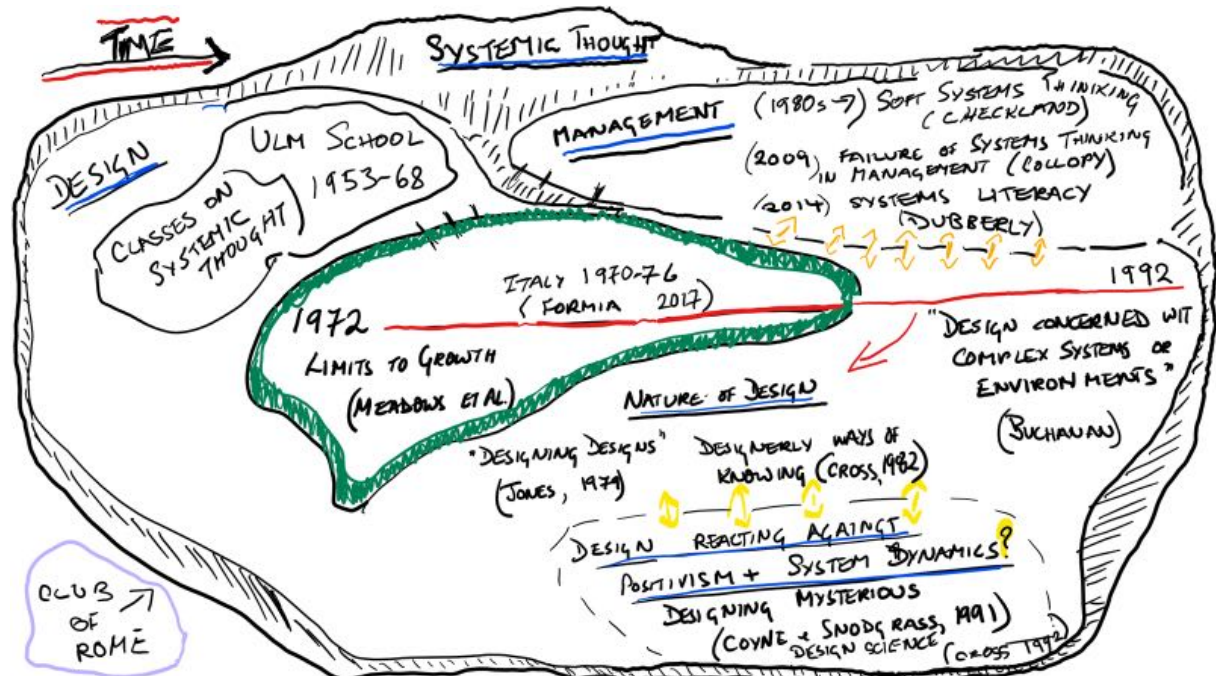 TIME
SYSTEMIC THOUGHT
DESIGN
ULM SCHOOL
1953-68
CLASSES ON
SYSTEMIC
THOUGHT
MANAGEMENT
(1980s→) SOFT SYSTEMS THINIKING
(CHECKLAND)
(2009) FAILURE OF SYSTEMS THINKING
IN MANAGEMENT (COLLOPY)
(2014) SYSTEMS LITERACY
(DUBBERLY)
ITALY 1970-76
(FORMIA 2017)
1972
LIMITS TO GROWTH
(MEADOWS ET AL.)
1992
"DESIGN CONCERNED WIT
COMPLEX SYSTEMS OR
ENVIRONMENTS"
(BUCHANAN)
NATURE OF DESIGN
"DESIGNING DESIGNS"
(JONES, 1979)
DESIGNERLY WAYS OF
KNOWING (CROSS, 1982)
DESIGN REACTING AGAINGT
POSITIVISM + SYSTEM DYNAMICS?
DESIGNING MYSTERIOUS
(COYNE + SNODGRASS, 1991)
DESIGN SCIENCE
(CROSS 1992)
CLUB
OF
ROME